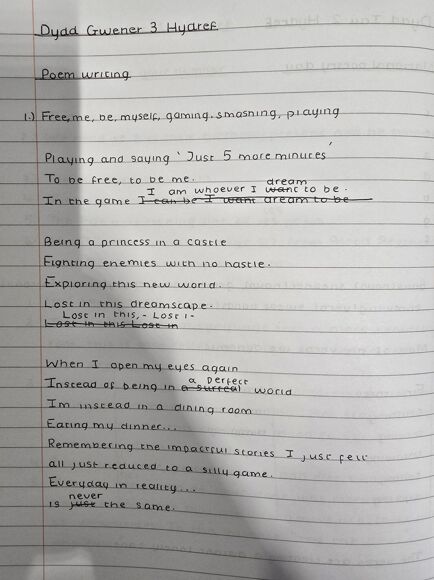 Dydd Gwener 3 Hydref
Poem writing
1.) Free, me, be, myself, gaming, smashing, playing
Playing and saying 'Just 5 more minutes'
To be free, to be me.
dream
I am whoever I want to be.
In the game I can be I want dream to be
Being a princess in a castle
Fighting enemies with no hastle.
Exploring this new world.
Lost in this dreamscape.
Lost in this, - Lost i -
Lost in this Lost in
When I open my eyes again
a perfect
Instead of being in a surreal world
Im instead in a dining room
Eating my dinner...
Remembering the impactful stories I just felt
all just reduced to a silly game.
Everyday in reality...
never
is just the same.